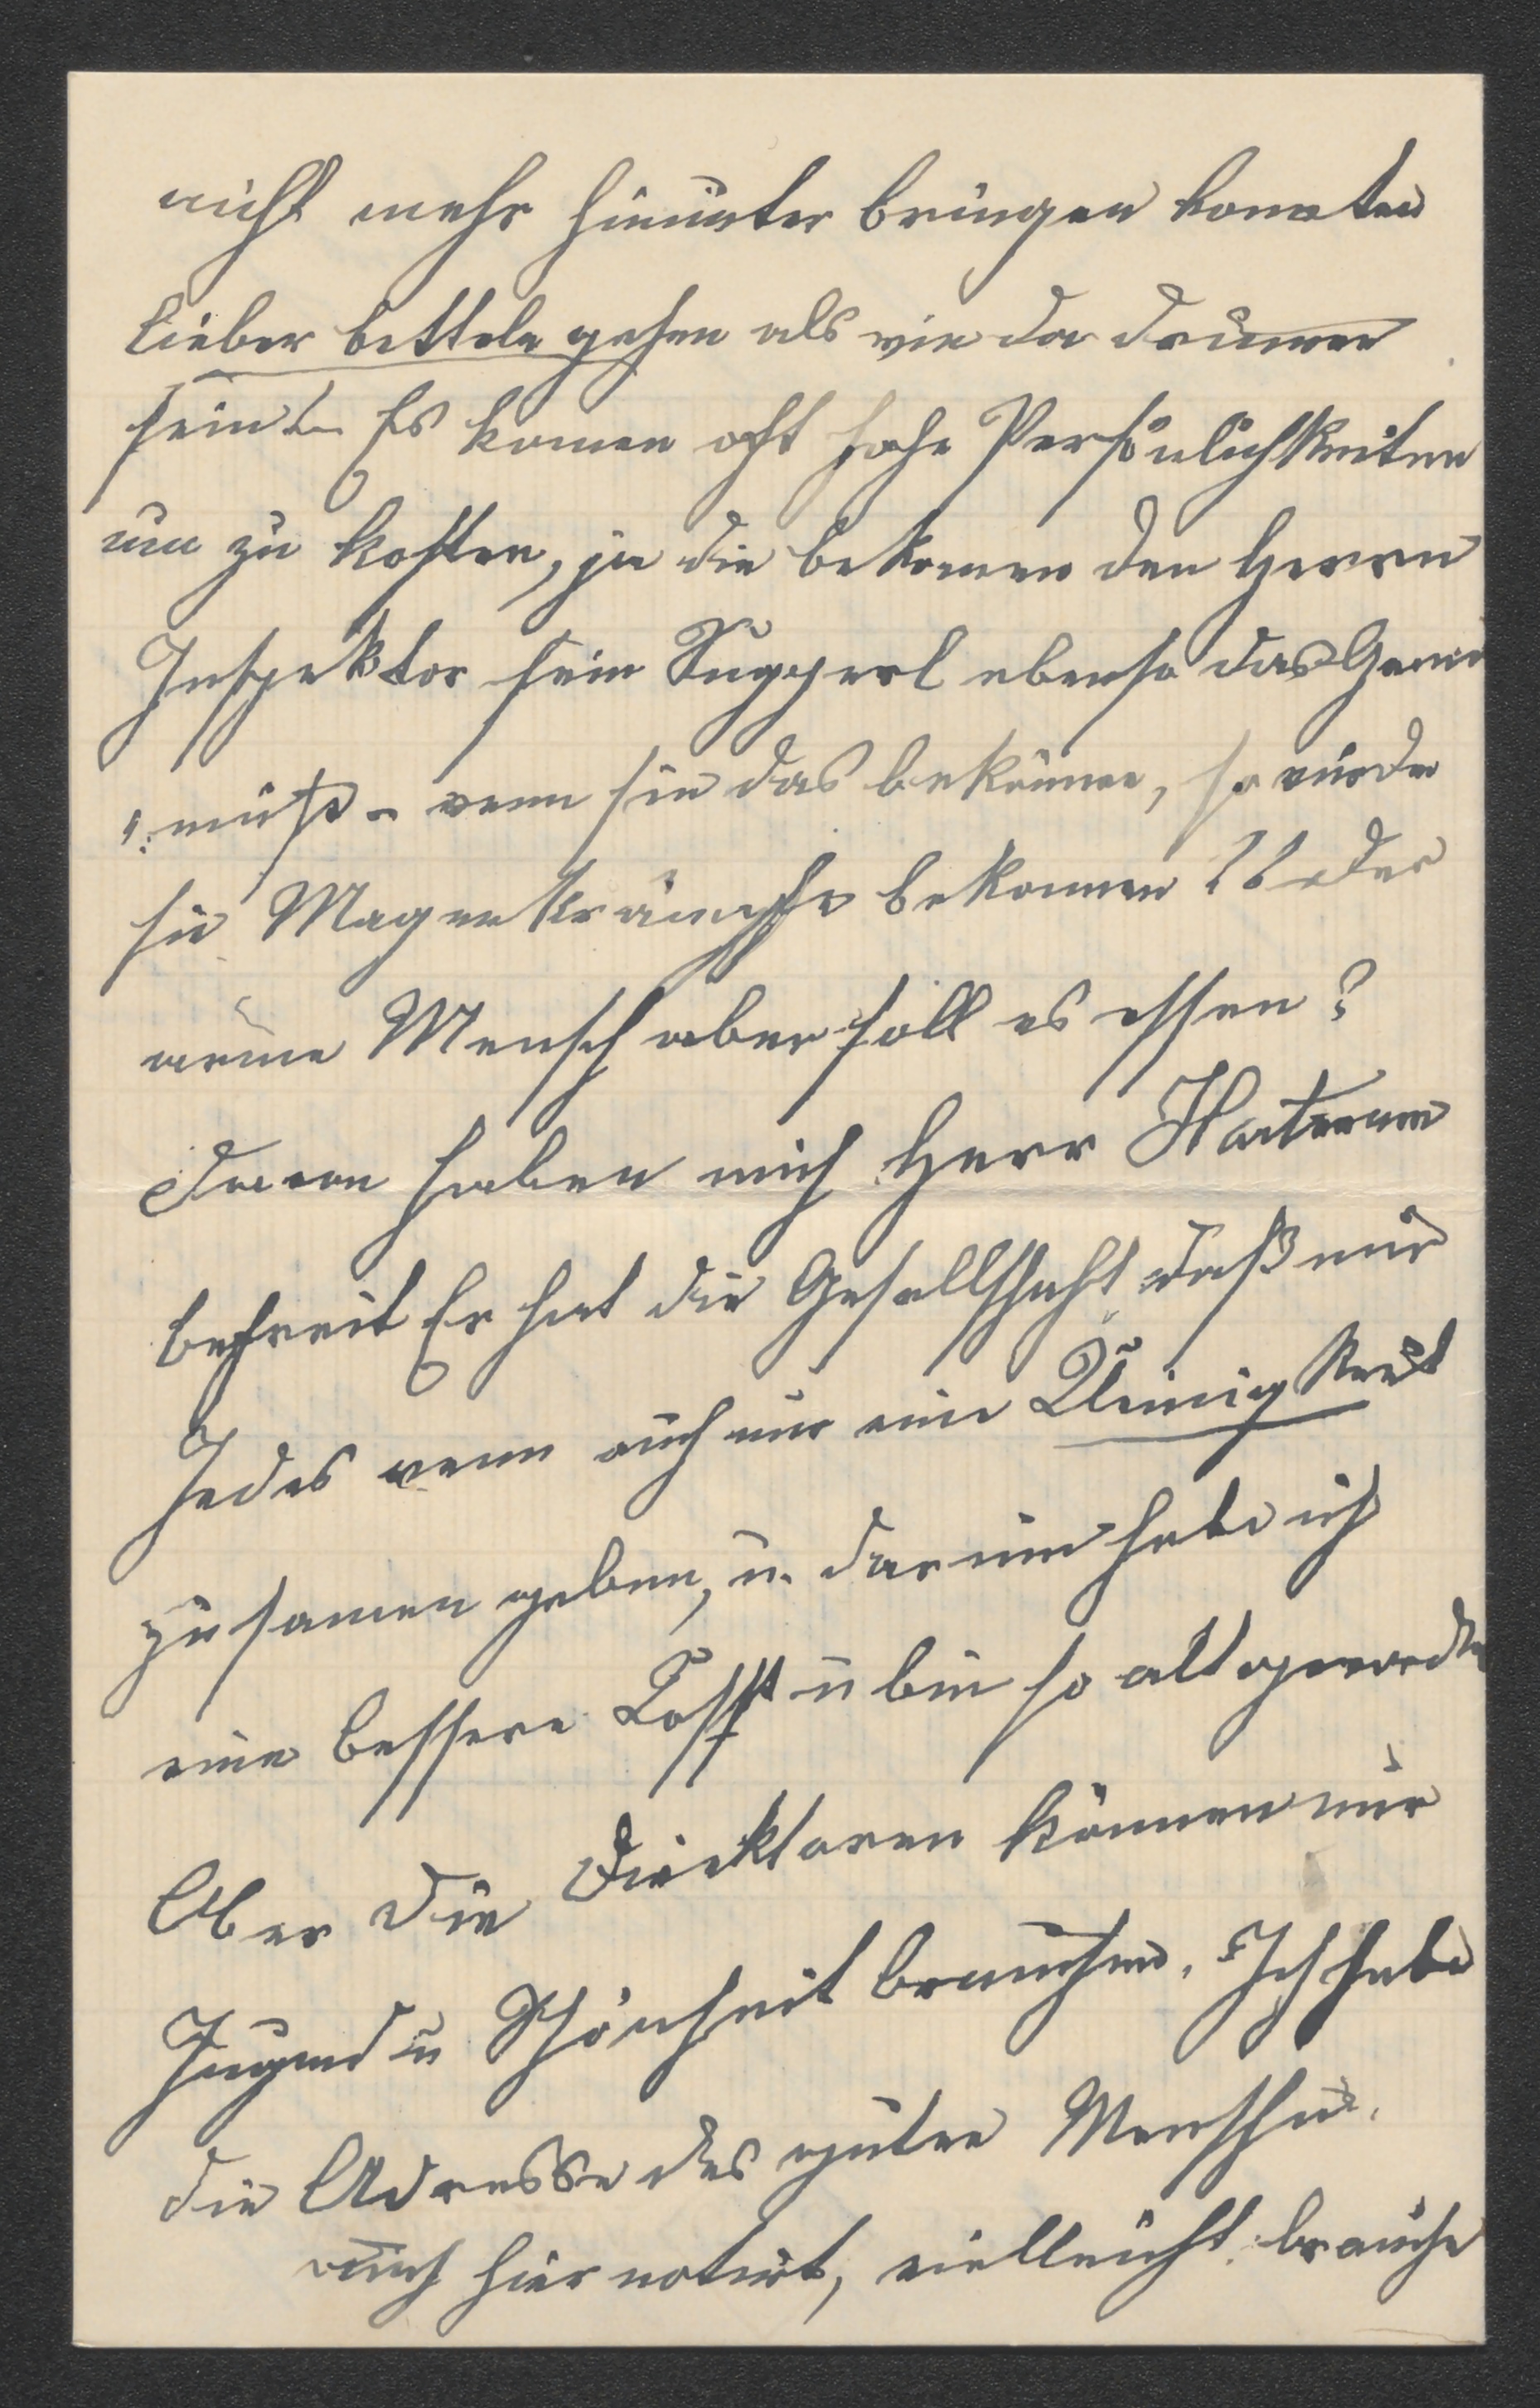 nicht mehr hinunter bringen konnten
lieber betteln gehen als wie da drunen
sein! – Es komen oft hohe Persönlichkeiten
um zu kosten, ja die bekomen den Herrn
Inspektor sein Supperl ebenso das Gemü
müße – wenn sie das bekämen, so würden
sie Magenkrämpfe bekommen!! der
arme Mensch aber soll es essen?
Davon haben mich Herr
befreit Er hat die Gesellschaft daß mir
Jedes wenn auch nur eine Kleinigkeit
zusamen geben, u. darum habe ich
eine bessere Kost u bin so alt geworden
Aber die Direktoren können nur
Jugend u Schönheit brauchen. Ich habe
die Adresse des guten Menschen.
auch hier notirt, vielleicht brauche